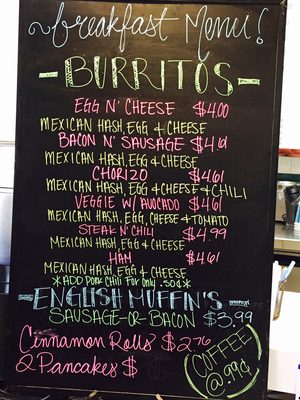 breakfast Menu!
-BURRITOS-
EGG N' CHEESE $4.00
MEXICAN HASH, EGG & CHEESE
BACON N' SAUSAGE $4.61
MEXICAN HASH, EGG & CHEESE
CHORIZO $4.61
MEXICAN HASH, EGG & CHEESE & CHILI
VEGGIE W/ AVOCADO $4.61
MEXICAN HASH, EGG, CHEESE & TOMATO
STEAK N' CHILI $4.99
MEXICAN HASH, EGG & CHEESE
HAM $4.61
MEXICAN HASH, EGG & CHEESE
*ADD PORK CHILI FOR ONLY .50¢*
-ENGLISH MUFFIN'S-
SAUSAGE-OR-BACON $3.99
Cinnamon Rolls $2.76
2 Pancakes $
COFFEE
@ .99¢